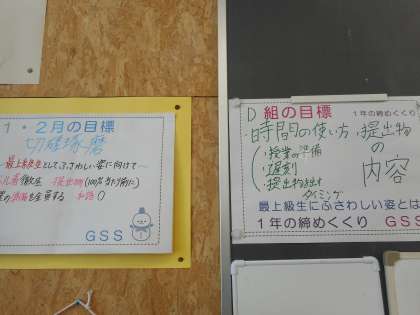 1・2月の目標
切磋琢磨
～最上級生としてふさわしい姿に向けて～
ベル着徹底 提出物(100%当たり前に)
を全員する
GSS
D 組の目標 1年の締めくくり
・時間の使い方・提出物の内容
・授業の準備
・遅刻
・提出物を出すタイミング
最上級生にふさわしい姿とは
1年の締めくくり GSS